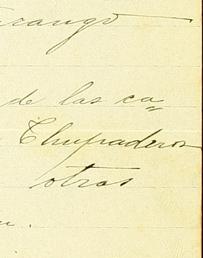 rango
de las ca=
Chupaderos
otras